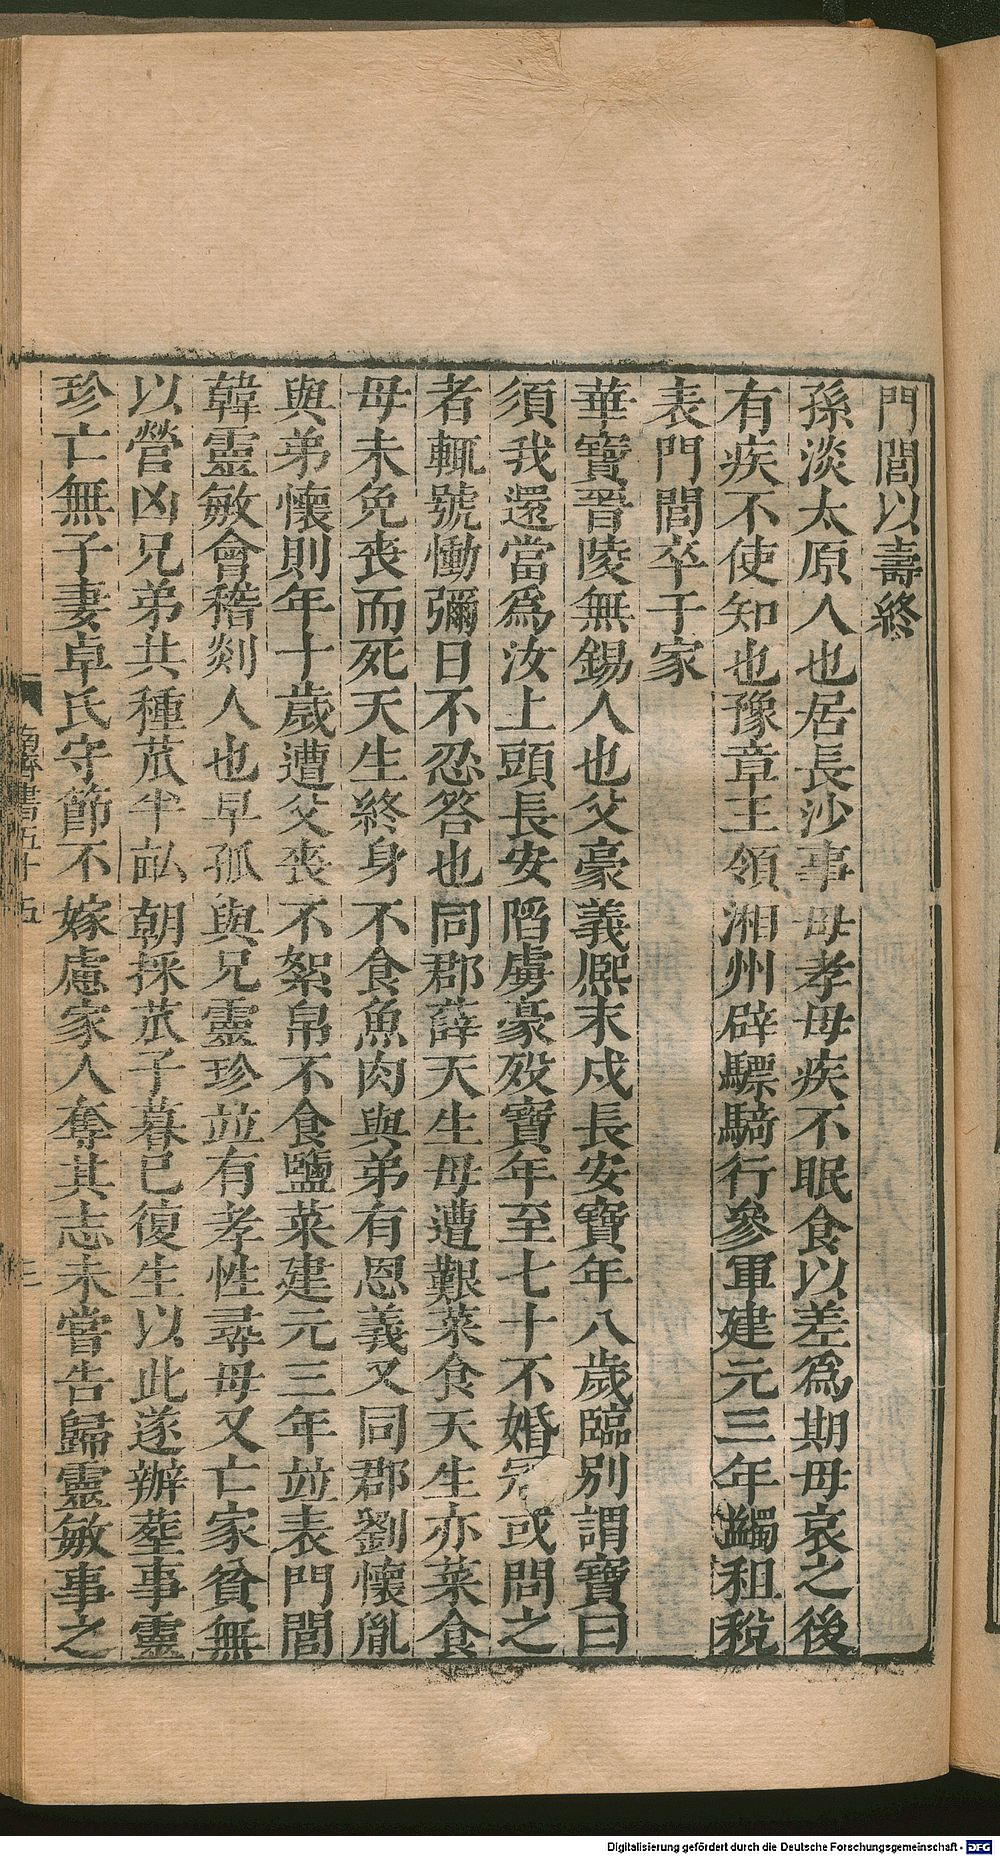 門閭以壽終
孫淡太原人也居長沙事母孝母疾不眠食以差爲期母哀之後
有疾不使知也豫章王領湘州辟驃騎行參軍建元三年蠲租稅
表門閭卒于家
華寶晉陵無錫人也父豪義熙末戍長安寶年八歲臨別謂寶曰
須我還當爲汝上頭長安陷虜豪歿寶年至七十不婚冠或問之
者輒號慟彌日不忍答也同郡薛天生母遭艱菜食天生亦菜食
母未免喪而死天生終身不食魚肉與弟有恩義又同郡劉懷胤
與弟懷則年十歲遭父喪不絮帛不食鹽菜建元三年竝表門閭
韓靈敏會稽剡人也早孤與兄靈珍竝有孝性尋母又亡家貧無
以營凶兄弟共種苽半畝朝採苽子暮已復生以此遂辦葬事靈
珍亡無子妻卓氏守節不嫁慮家人奪其志未嘗告歸靈敏事之
南齊書五十五
三
Digitalisierung gefördert durch die Deutsche Forschungsgemeinschaft - DFG